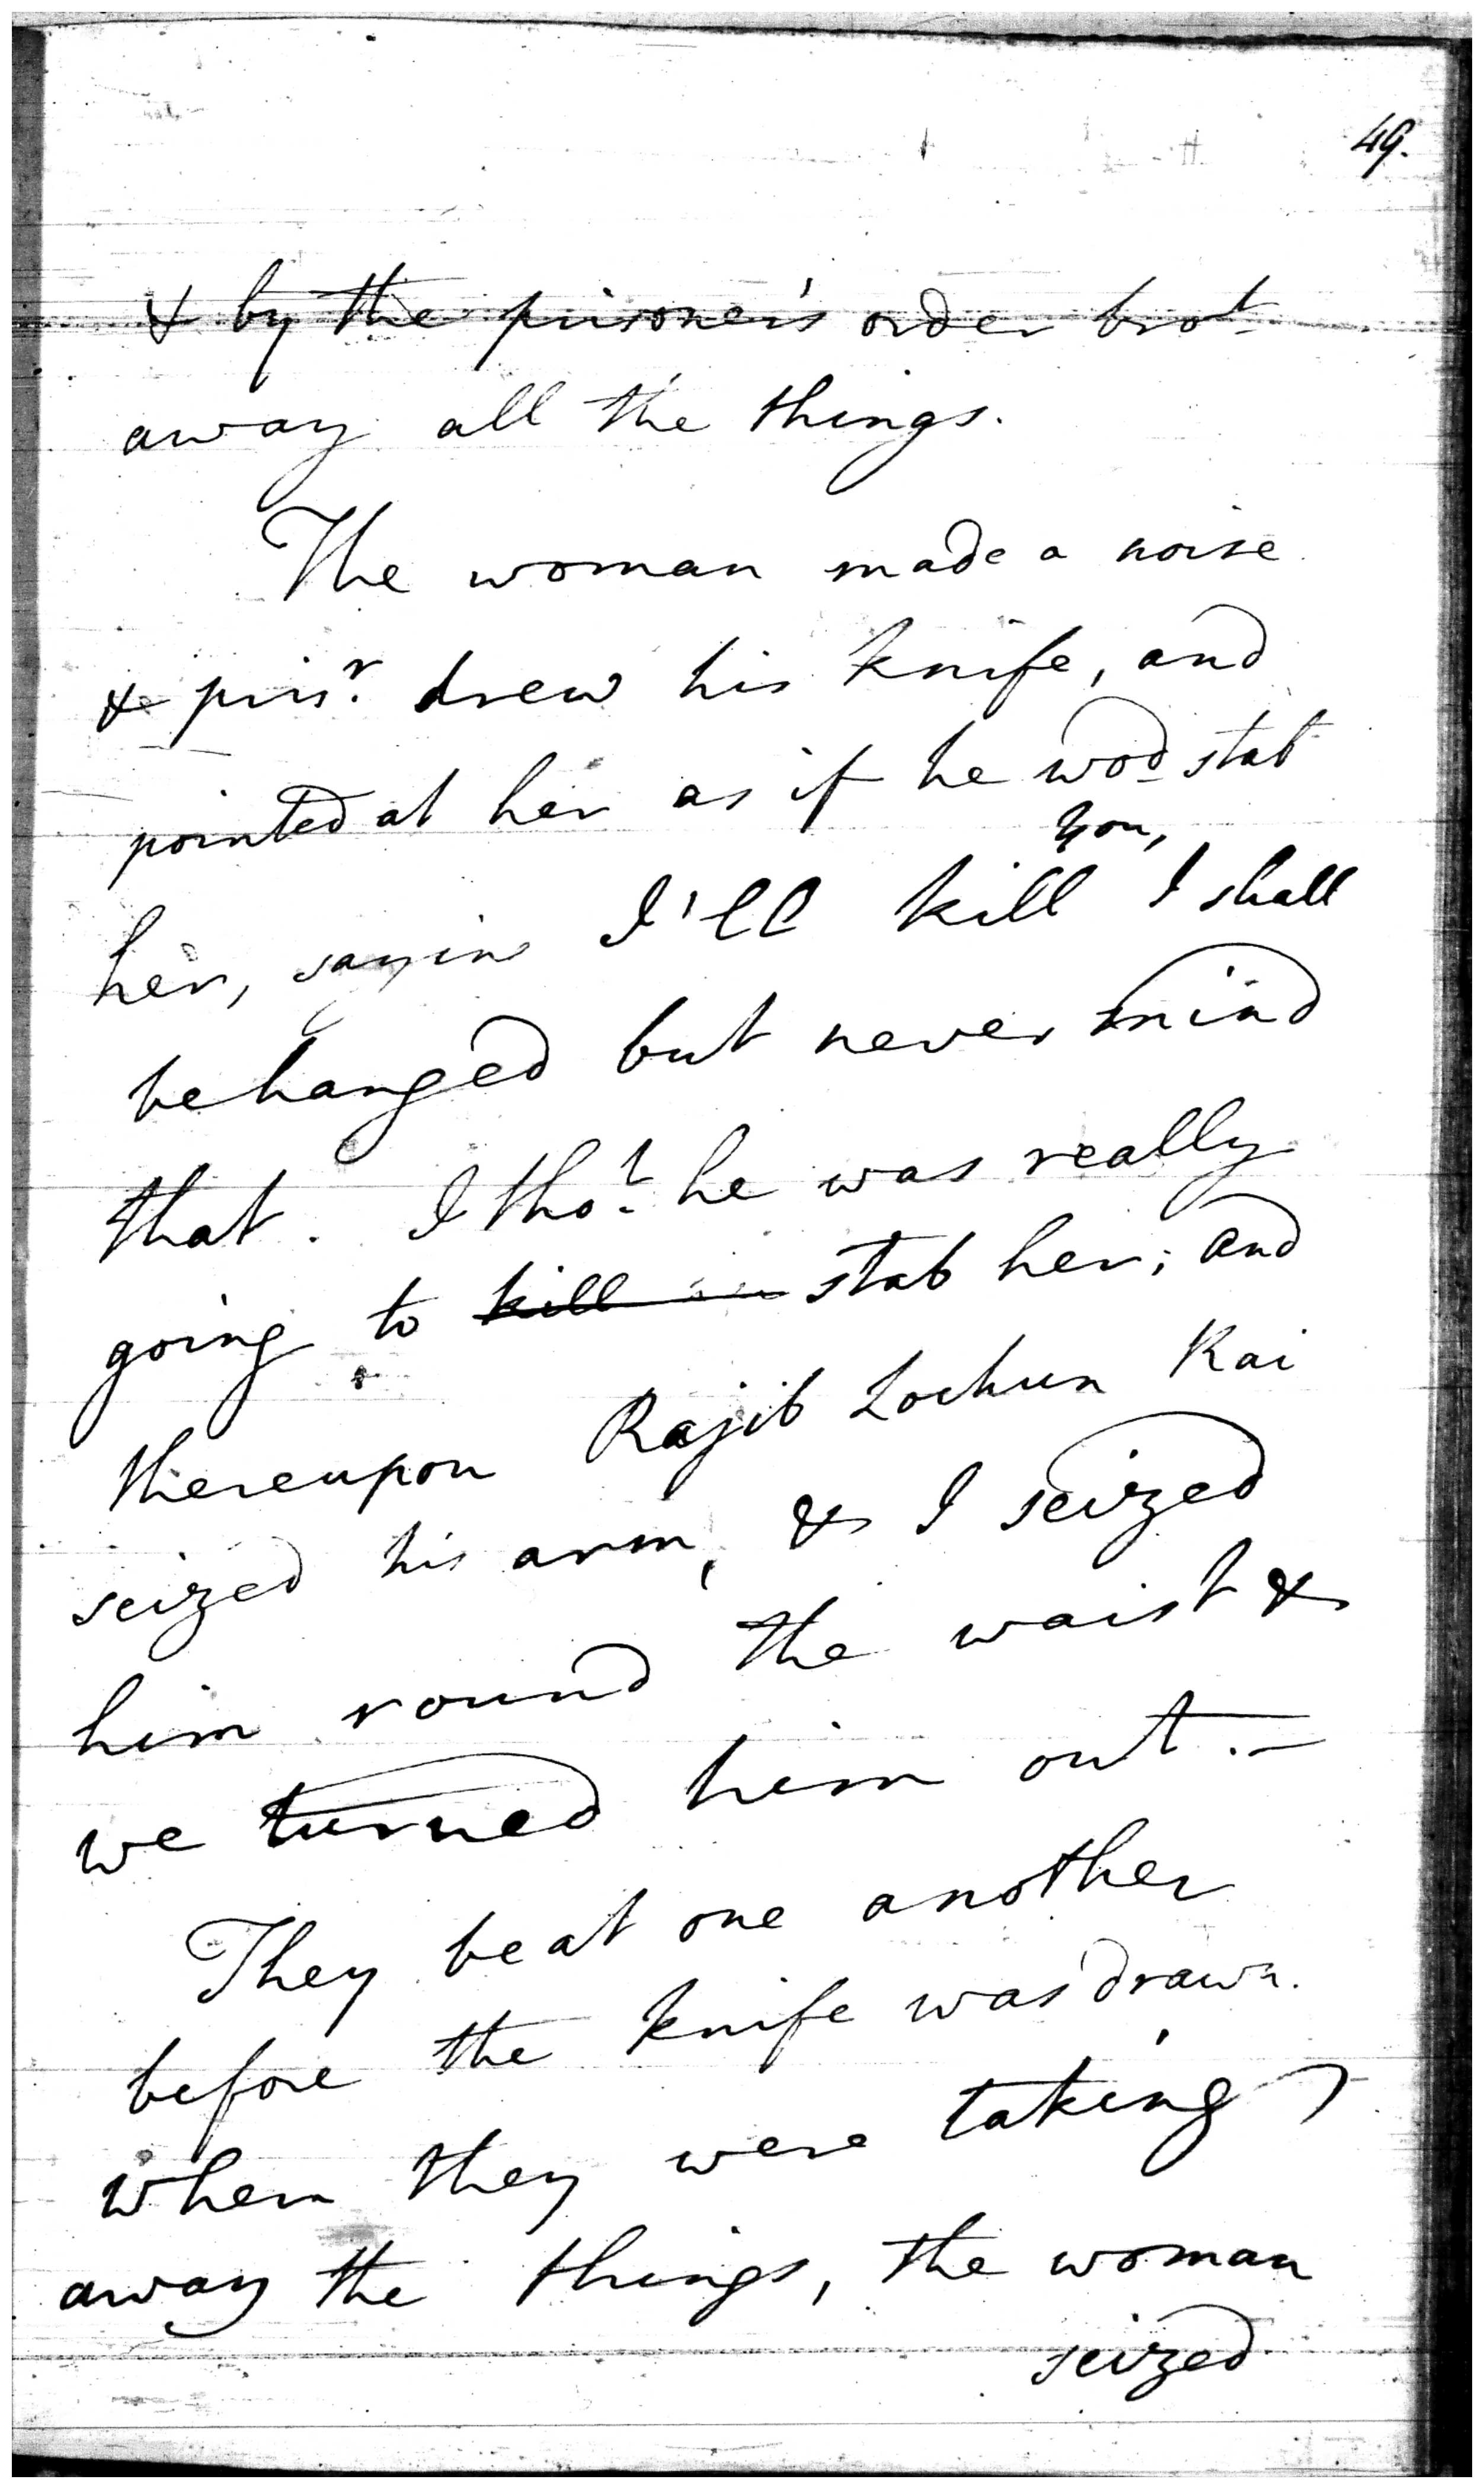 49.
& by the prisoner's order brot
away all the things.
The woman made a noise
& prisr. drew his knife, and
pointed at her as if he wod stab
you,
her, saying I'll kill I shall
be hanged but never mind
that. I thot. he was really
going to kill stab her; and
thereupon Rajib Lochun Rai
seized his arm, & I seized
him round the waist &
we turned him out.—
They beat one another
before the knife was drawn.
when they were taking
away the things, the woman
seized